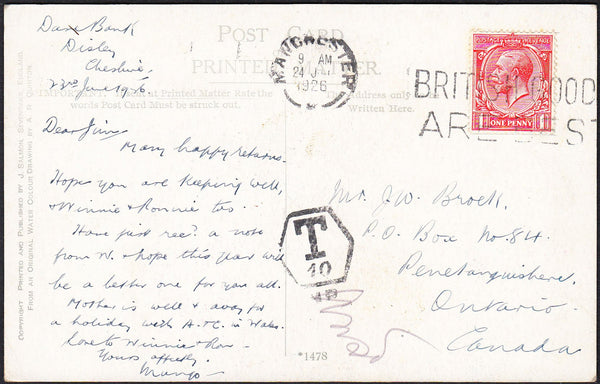 Dane Bank
Disley
Cheshire.
23rd June 1926.
Dear Jim,
Many happy returns.
Hope you are keeping well,
& Winnie & Ronnie too.
Have just recd a note
from W. & hope this year will
be a better one for you all.
Mother is well & away for
a holiday with A.T.C. in Wales.
Love to Winnie & Ron.
Yours affectly.
POST CARD
PRINTED
IMPORTANT.
Printed Matter Rate the
words Post Card Must be struck out.
Address only
Written Here.
MANCHESTER
9 AM
24 JUN
1926
BRITISH GOODS
ARE BEST
POSTAGE
ONE PENNY
Mr. J. W. Brock.
P.O. Box No. 84.
Penetanguishene.
Ontario.
Canada
T
10
*1478
COPYRIGHT PRINTED AND PUBLISHED BY J. SALMON, SEVENOAKS, ENGLAND.
FROM AN ORIGINAL WATER COLOUR DRAWING BY A.